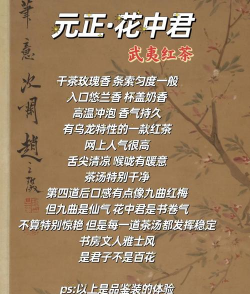 元正·花中君
武夷红茶
干茶玫瑰香 条索匀度一般
入口悠兰香 杯盖奶香
高温冲泡 香气持久
有乌龙特性的一款红茶
网上人气很高
舌尖清凉 喉咙有暖意
茶汤特别干净
第四道后口感有点像九曲红梅
但九曲是仙气 花中君是书卷气
不算特别惊艳 但是每一道茶汤都发挥稳定
书房文人雅士风
是君子不是百花
ps:以上是品鉴装的体验
意